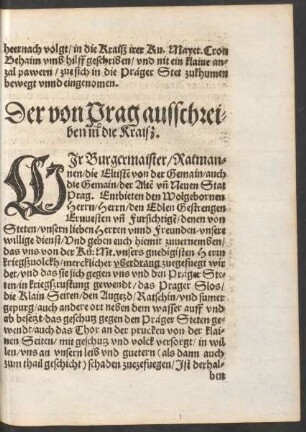 hernach volgt/ in die Kraisz irer Ku. Mayet. Cron
Behaim vmb hilff geschriben/ vnd nit ein klaine an-
zal pawern/ zue sich in die Präger Stet zukhumen
bewegt vnnd eingenomen.
Der von Prag ausschrei-
ben in die Kraisz.
WIr Burgermaister/ Ratman-
nen/ die Eltistē von der Gemain/ auch
die Gemain/ der Altē vñ Neuen Stat
Prag. Entbieten den Wolgebornen
Herrn/ Herrn/ den Edlen Gestrengen
Ernuesten vñ Fursichtigē/ denen von
Steten/ vnsern lieben Herren vnnd Freunden/ vnsern
willige dienst/ Vnd geben euch hiemit zuuernemben/
das vns von der Kü: Mt. vnsers gnedigisten Herrn
kriegsznolckh/ mercklicher yberdrang zuegefuegt wir
det/ vnd das sie sich gegen vns vnd den Präger Ste-
ten/ in kriegszrustung gewendt/ das Prager Slos/
die Klain Seiten/ den Augezd/ Ratschin/ vnd sumer
gepurg/ auch andere ort neben dem wasser auff vnd
ab besetzt/ das geschutz gegen den Präger Steten ge-
wendt/ auch das Thor an der prucken von der klai-
nen Seiten/ mit geschutz vnd volck versorgt/ in wil-
len/ vns an vnsern leib vnd guetern (als dann auch
zum thail geschicht) schaden zuezefuegen/ Ist derhal-
ben